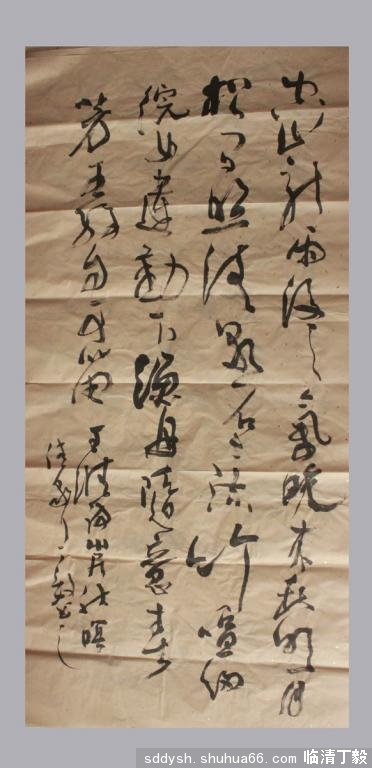 空山新雨後天氣晚來秋明月
松間照清泉石上流竹喧歸
浣女蓮動下漁舟隨意春
芳王孫自可留
王維詩山居秋暝
丁毅書之
sddysh.shuhua66.com 临清丁毅